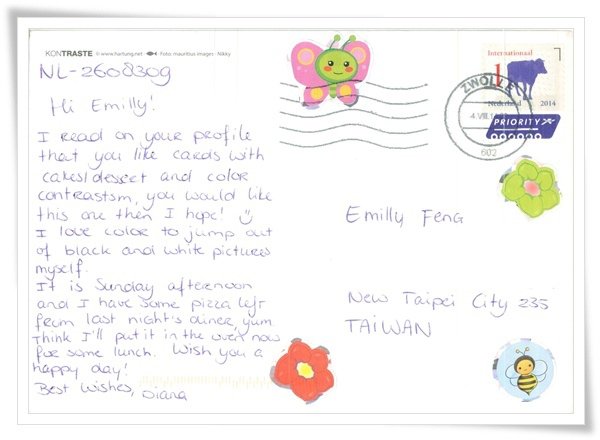 KONTRASTE © www.hartung.net Foto: mauritius images - Nikky
NL-2608309
Hi Emilly!
I read on your profile
that you like cards with
cakes/dessert and color
contrastsm, you would like
this one then I hope!
I love color to jump out
of black and white pictures
myself.
It is Sunday afternoon
and I have some pizza left
from last night's diner, yum.
Think I'll put it in the oven now
for some lunch. Wish you a
happy day!
Best Wishes, Diana
Internationaal
1
Nederland 2014
PRIORITY
ZWOLLE
4.VIII.1
602
Emilly Feng
New Taipei City 235
TAIWAN